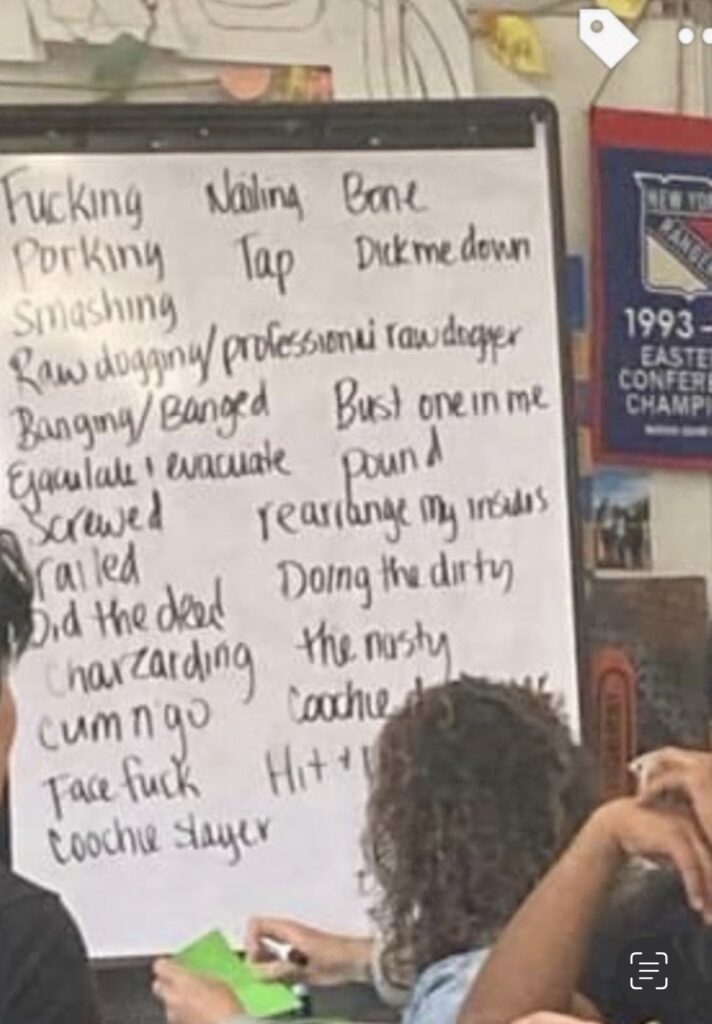 Fucking Nailing Bone
Porking Tap Dick me down
Smashing
Raw dogging/professional raw dogger
Banging/Banged Bust one in me
Ejaculate & evacuate pound
Screwed rearrange my insides
railed
Doing the dirty
Did the deed
the nasty
Charzarding
cum n go Coochie
Face fuck Hit +
Coochie slayer
NEW YORK
RANGERS
1993-